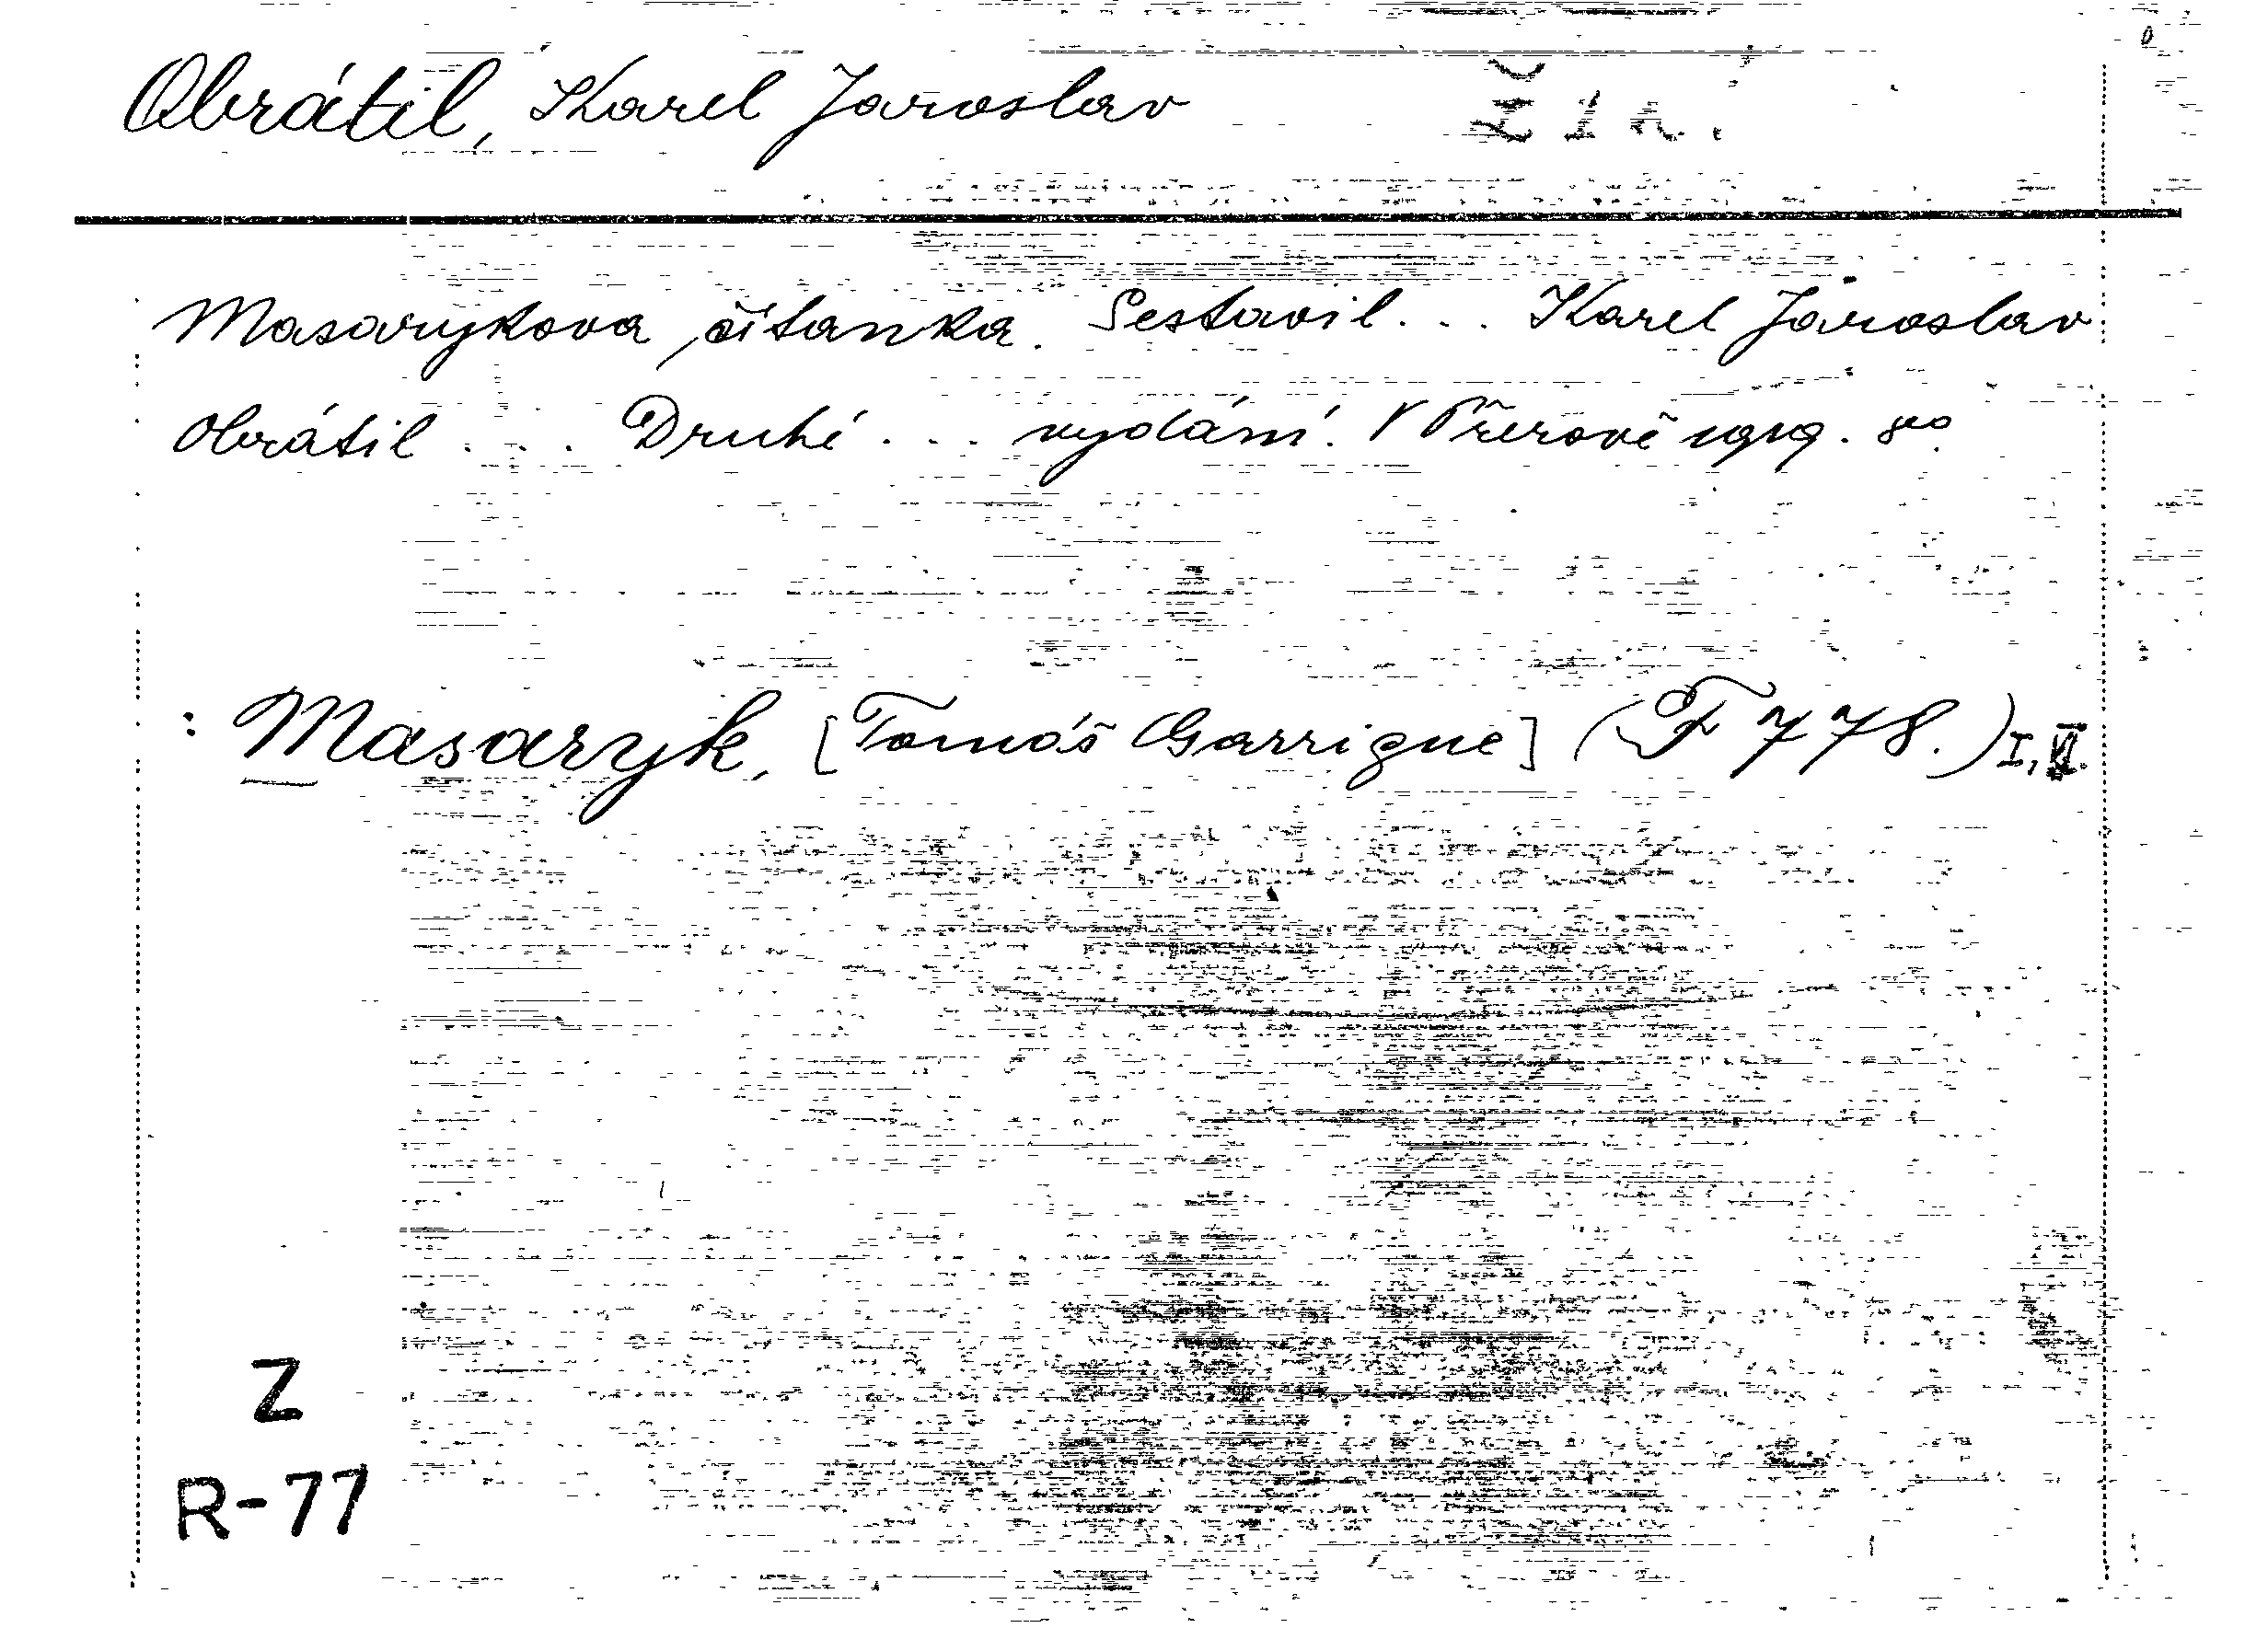 Obrátil, Karel Jaroslav
Masarykova čítanka. Sestavil... Karel Jaroslav
Obrátil... Druhé... vydání. V Přerově 1919. 8vo
: Masaryk, [Tomáš Garrigue] (F 778.)
Z
R-77